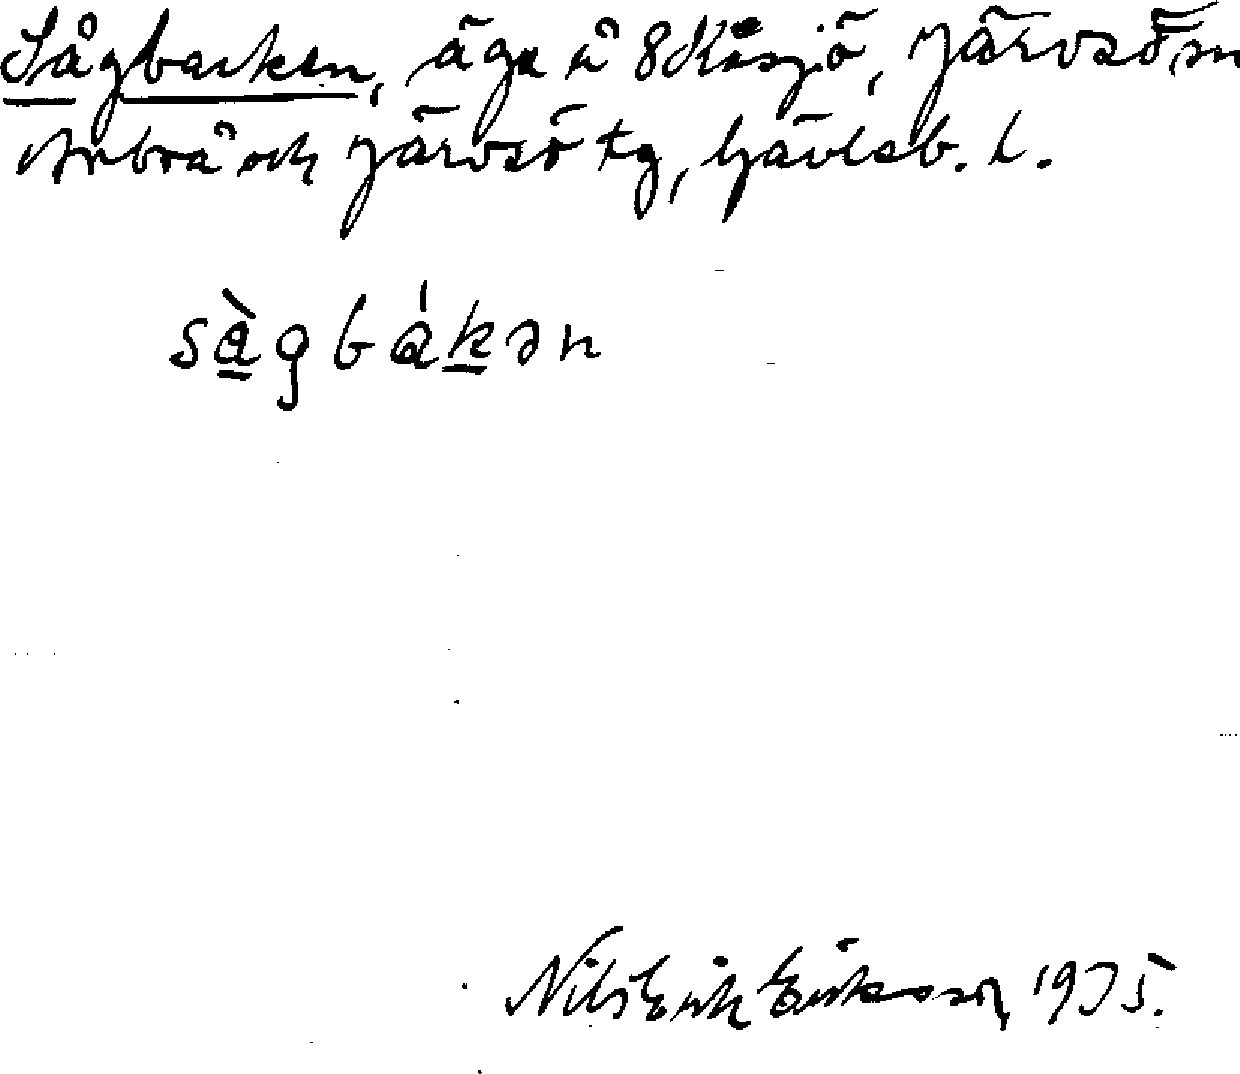 Sågbacken, äga å 8 Kåsjö, Järvsö sn
Arbrå och Järvsö tg, Gävleb. l.
sàgbákən
Nils Erik Eriksson, 1975.